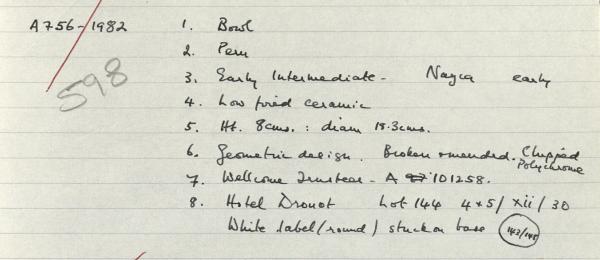 A756-1982
598
1. Bowl
2. Peru
3. Early Intermediate - Nazca early
4. Low fired ceramic
5. Ht. 8cms. : diam 18.3cms.
6. Geometric design. Broken & mended. Chipped
Polychrome
7. Wellcome Trustees - A 101258.
8. Hotel Drouot Lot 144 4+5/xii/30
White label (round) stuck on base 143/145